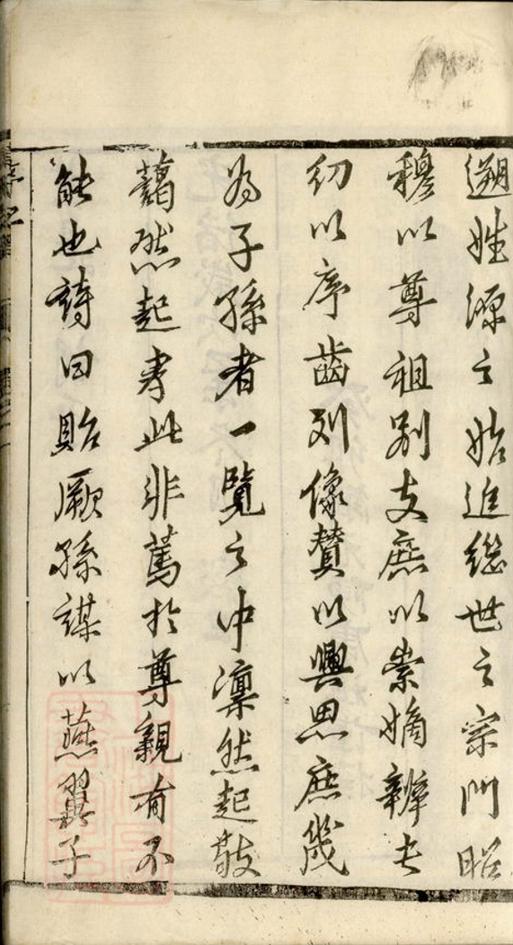 遡姓源之始進繼世之宗門昭
穆以尊祖别支庶以崇嫡辨長
幼以序齒列像贊以興思庶幾
為子孫者一覽之中凜然起敬
藹然起孝此非篤於尊親有不
能也詩曰貽厥孫謀以燕翼子